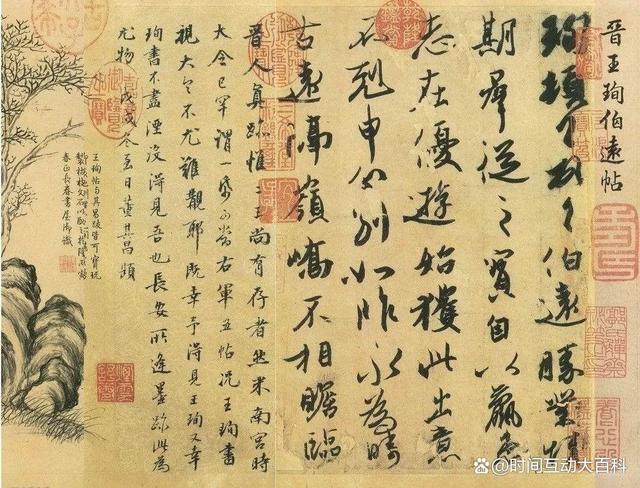 晉王珣伯遠帖
珣頓首頓首伯遠勝業情
期羣從之寶自以羸患
志在優遊始獲此出意
不剋申分別如昨永為疇
古遠隔嶺嶠不相瞻臨
晉人真跡惟二王尚有存者然米南宮時
大令已罕謂一紙可當右軍五帖況王珣書
視大令不尤難覯耶既幸予得見王珣又幸
珣書不盡湮沒得見吾也長安所逢墨跡此為
尤物戊戌冬至日董其昌題
王珣帖與其昌跋皆可寶玩
春正長春書屋御識
@时间互动大百科